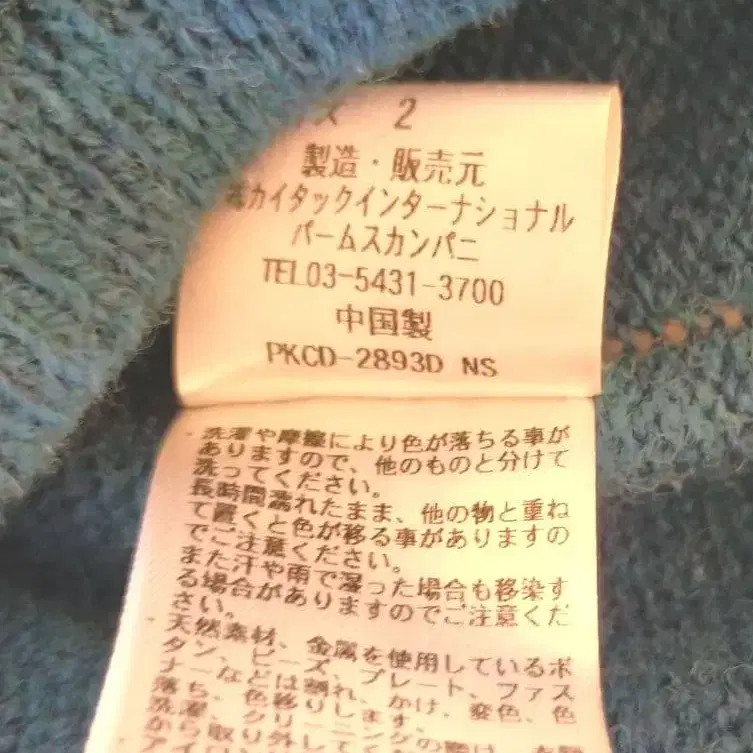 ズ 2
製造・販売元
㈱カイタックインターナショナル
パームスカンパニ
TEL03-5431-3700
中国製
PKCD-2893D NS
・洗濯や摩擦により色が落ちる事が
ありますので、他のものと分けて
洗ってください。
長時間濡れたまま、他の物と重ね
て置くと色が移る事がありますの
でご注意ください。
また汗や雨で湿った場合も移染す
る場合がありますのでご注意くだ
さい。
・天然素材、金属を使用しているボ
タン、ビーズ、プレート、ファス
ナーなどは割れ、かけ、変色、色
落ち、色移りします。
洗濯、クリーニングの際は
から取り外して
アイロン